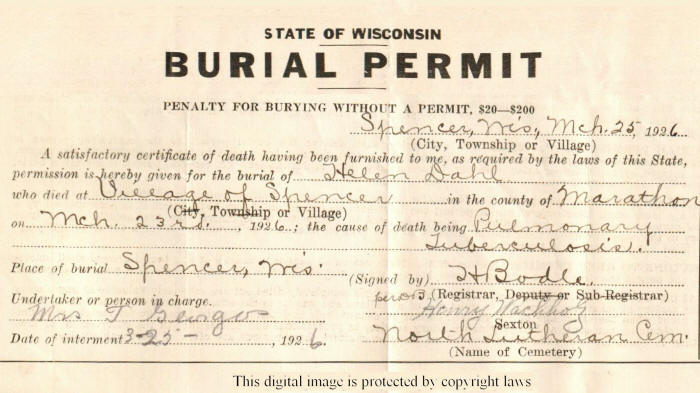 STATE OF WISCONSIN
BURIAL PERMIT
PENALTY FOR BURYING WITHOUT A PERMIT, $20—$200
Spencer, Wis., Mch. 25, 1926.
(City, Township or Village)
A satisfactory certificate of death having been furnished to me, as required by the laws of this State,
permission is hereby given for the burial of Helen Dahl
who died at Village of Spencer in the county of Marathon
(City, Township or Village)
on Mch. 23rd., 1926.; the cause of death being Pulmonary
Tuberculosis.
Place of burial Spencer, Wis. (Signed by) H Bodle.
(Registrar, Deputy or Sub-Registrar)
Undertaker or person in charge.
Mrs
Henry
Sexton
Date of interment 3-25-, 1926. North Lutheran Cem.
(Name of Cemetery)
This digital image is protected by copyright laws